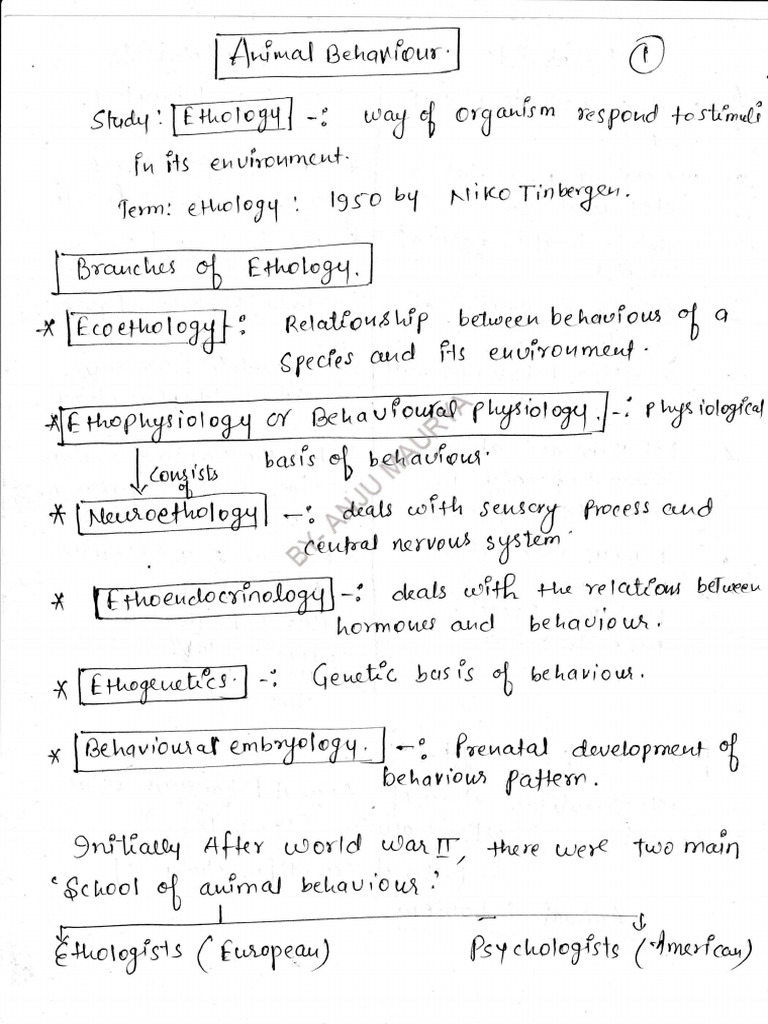 Animal Behaviour.
1
Study: Ethology -: way of organism respond to stimuli
in its environment.
Term: ethology: 1950 by Niko Tinbergen.
Branches of Ethology.
* Ecoethology -: Relationship between behaviour of a
Species and its environment.
* Ethophysiology or Behavioural physiology. -: physiological
basis of behaviour.
consists
of
* Neuroethology -: deals with sensory process and
central nervous system
* Ethoendocrinology -: deals with the relations between
hormones and behaviour.
* Ethogenetics. -: Genetic basis of behaviour.
* Behavioural embryology. -: Prenatal development of
behaviour pattern.
Initially After world war II, there were two main
'School of animal behaviour:'
Ethologists (European) Psychologists (American)
BY- ANJU MAURYA